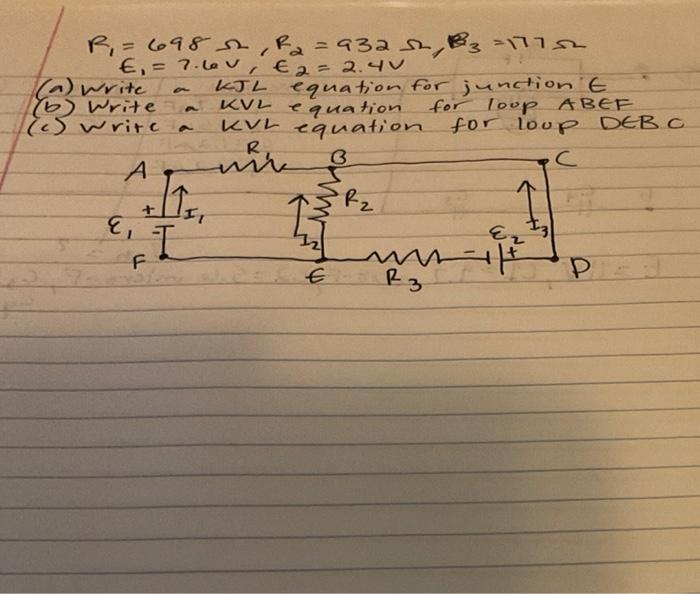 R₁ = 698 Ω, R₂ = 932 Ω, R₃ = 177 Ω
Ɛ₁ = 7.6V, Ɛ₂ = 2.4V
(a) Write a KJL equation for junction E
(b) Write a KVL equation for loop ABEF
(c) Write a KVL equation for loop DEBC
R₁
A B C
R₂
+ I₁
Ɛ₁ I₂ Ɛ₂ I₃
- +
F E R₃ D